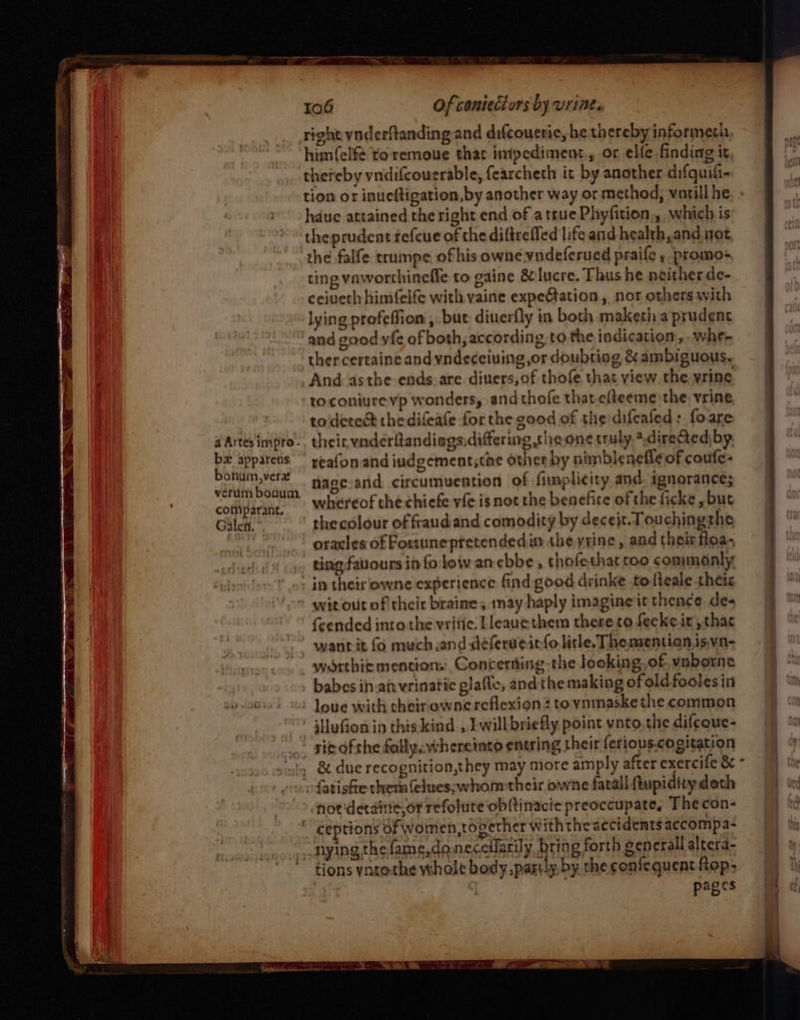 106 Of coniectors by vrine.
right vnderſtanding and diſcouerie, he thereby informeth
himſelfe to remoue that impediment, or elſe finding it,
thereby vndiſcouerable, ſearcheth it by another diſquiſi-
tion or inueſtigation, by another way or method, vntill he
haue attained the right end of a true Phyſition, which is
the prudent reſcue of the diſtreſſed life and health, and not
the falſe trumpe of his owne vndeſerued praiſe, promo-
ting vnworthineſſe to gaine & lucre. Thus he neither de-
ceiueth himſelfe with vaine expectation, nor others with
lying profeſſion, but diuerſly in both maketh a prudent
and good vſe of both, according to the indication, whe-
ther certaine and vndeceiuing, or doubting & ambiguous.
And as the ends are diuers, of thoſe that view the vrine
to coniure vp wonders, and thoſe that eſteeme the vrine
to detect the diſeaſe for the good of the diſeaſed: ſo are
their vnderſtandings differing, the one truly a directed by
reaſon and iudgement, the other by nimbleneſſe of couſe-
nage and circumuention of ſimplicity and ignorance;
whereof the chiefe vſe is not the benefite of the ſicke, but
the colour of fraud and comodity by deceit. Touching the
oracles of Fortune pretended in the vrine, and their floa-
ting fauours in ſo low an ebbe, thoſe that too commonly
in their owne experience find good drinke to ſteale their
wit out of their braine, may haply imagine it thence de-
ſcended into the vrine. I leaue them there to ſecke it, that
want it ſo much, and deſerue it ſo litle. The mention is vn-
worthie mention. Concerning the looking of vnborne
babes in an vrinatie glaſſe, and the making of old fooles in
loue with their owne reflexion: to vnmaske the common
illuſion in this kind, I will briefly point vnto the diſcoue-
rie of the folly, whereinto entring their ſerious cogitation
& due recognition, they may more amply after exerciſe &
ſatisfie themſelues, whom their owne fatall ſtupidity doth
not detaine, or reſolute obſtinacie preoccupate. The con-
ceptions of women, together with the accidents accompa-
nying the ſame, do neceſſarily bring forth generall altera-
tions vnto the whole body, partly by the conſequent ſtop-
pages
a Artes impro-
bæ apparens
bonum, veræ
verum bonum
comparant.
Galen.